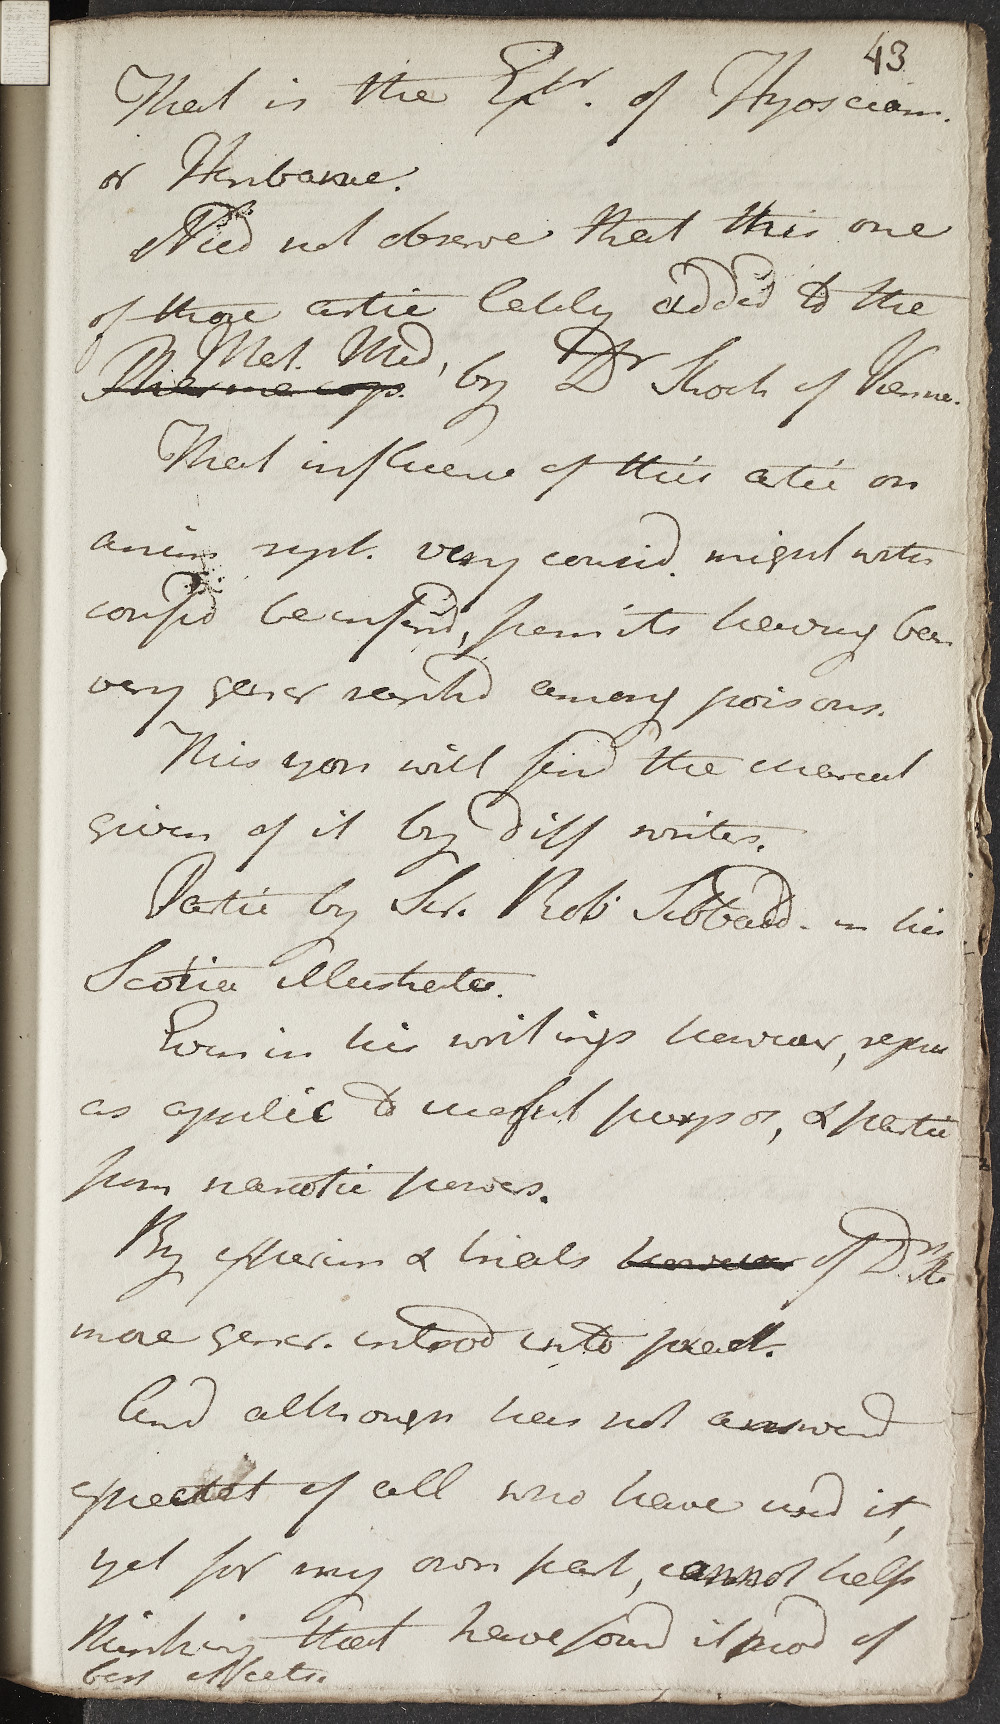 43
That is the Extr. of Hyosciam.
or Henbane.
Need not observe that this one
of those artic lately added to the
Mat. Med,
Pharmacop. by Dr Stork of Vienna.
That influence of this artic on
anim syst. very consid. might with
confid be inferd, from its having been
very gener rankd among poisons.
This you will find the charact
given of it by diff writers.
Partic by Sir. Rob Sibbald. in his
Scotia illustrata.
Even in his writings however, repres
as applic to useful purpos, & partic
from narcotic powers.
By experim & trials however of Dr St
more gener. introd into pract.
And although has not answerd
expectat of all who have used it,
yet for my own part, cannot help
thinking that have found it prod of
best effects.